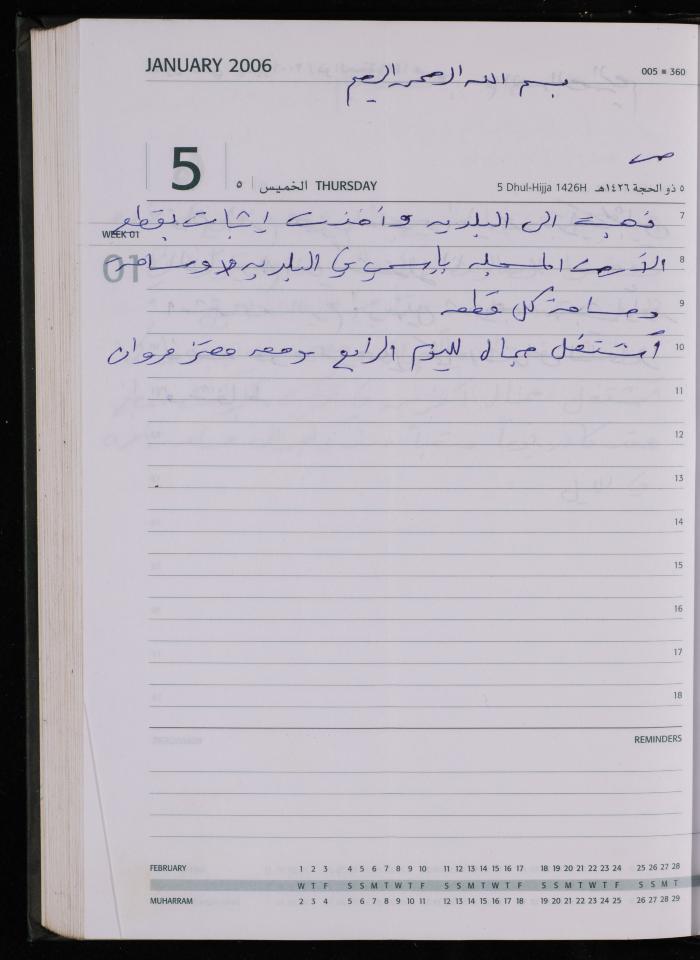 JANUARY 2006
005 ■ 360
بسم الله الرحمن الرحيم
5
٥ الخميس THURSDAY
5 Dhul-Hijja 1426H ٥ ذو الحجة ١٤٢٦هـ
7
ذهبت الى البلديه وأخذت إثبات بقطع
WEEK 01
01
8
الأرض المسجله بإسمي في البلديه
9
ومساحة كل قطعه
10
أشتغل جمال لليوم الرابع ومعه معتز مروان
11
12
13
14
15
16
17
18
REMINDERS
FEBRUARY 1 2 3 4 5 6 7 8 9 10 11 12 13 14 15 16 17 18 19 20 21 22 23 24 25 26 27 28
W T F S S M T W T F S S M T W T F S S M T W T F S S M T
MUHARRAM 2 3 4 5 6 7 8 9 10 11 12 13 14 15 16 17 18 19 20 21 22 23 24 25 26 27 28 29